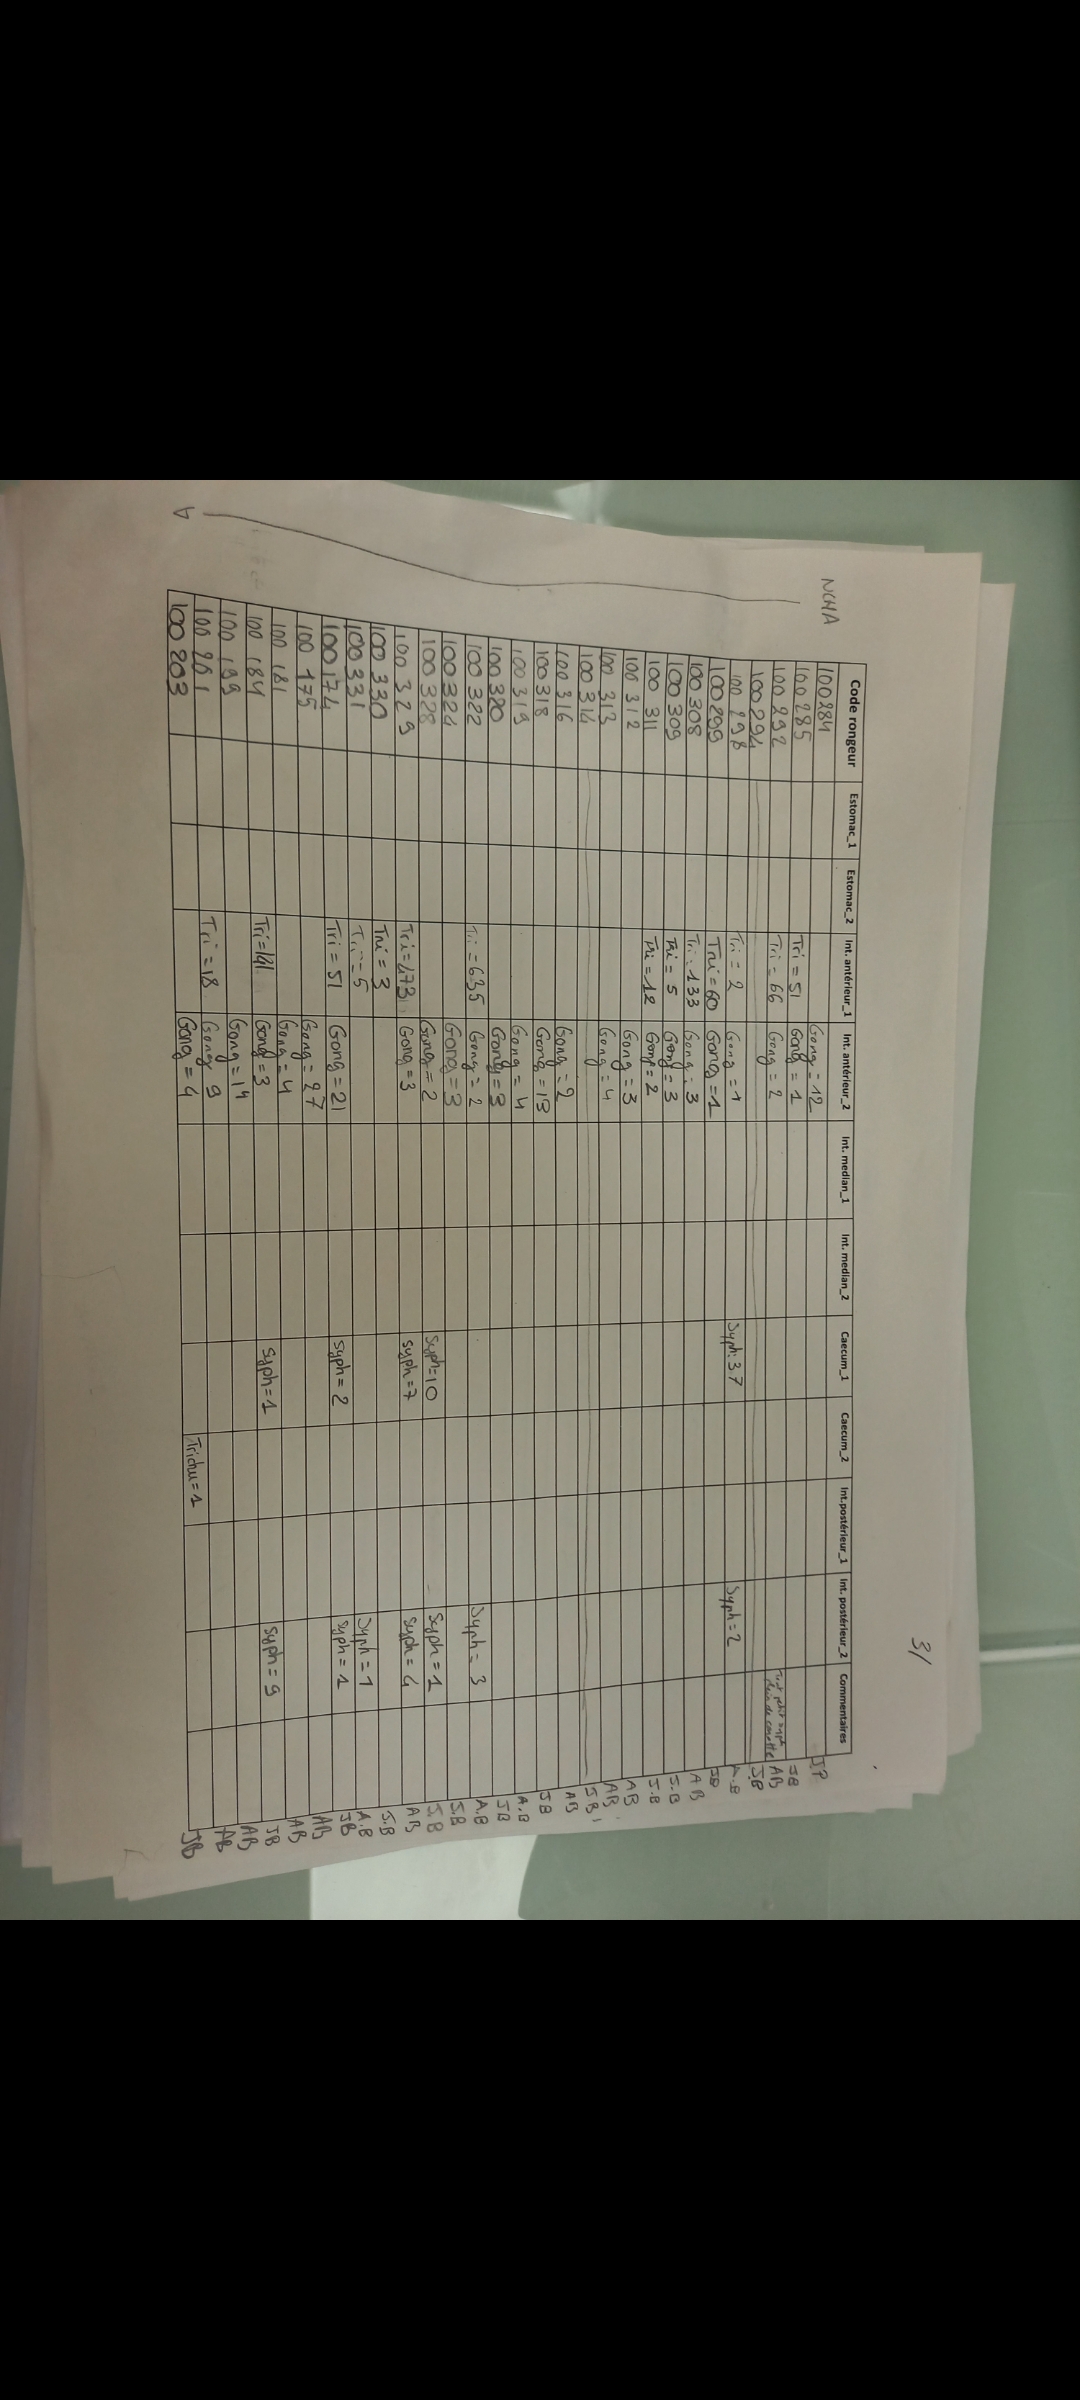 3/
NCHA
Code rongeur Estomac_1 Estomac_2 Int. antérieur_1 Int. antérieur_2 Int. median_1 Int. median_2 Caecum_1 Caecum_2 Int.postérieur_1 Int. postérieur_2 Commentaires
100284 Gong = 12 J.P
100285 Tri = 51 Gong = 1 JB
100292 Tri = 66 Gong = 2 Tout petit plein de AB
100294 J.B
100 298 Tri = 2 Gong = 1 Syph: 37 Syph = 2 A.B
100299 Tri = 60 Gong = 1 JB
100 308 Tri = 133 Gong = 3 AB
100 309 Tri = 5 Gong = 3 J.B
100 311 Tri = 12 Gong = 2 J.B
100 312 Gong = 3 AB
100 313 Gong = 4 AB
100 314 JB
100 316 Gong = 2 AB
100 318 Gong = 13 JB
100 319 Gong = 4 A.B
100 320 Gong = 3 JB
100 322 Tri = 635 Gong = 2 Syph = 3 A.B
100 324 Gong = 3 J.B
100 328 Gong = 2 Syph = 10 Syph = 1 J.B
100 329 Tri = 473 Gong = 3 Syph = 7 Syph = 4 AB
100 330 Tri = 3 J.B
100 331 Tri = 5 Syph = 1 A.B
100 174 Tri = 51 Gong = 21 Syph = 2 Syph = 1 JB
100 175 Gong = 27 AB
100 181 Gong = 4 AB
100 184 Tri = 141 Gong = 3 Syph = 1 Syph = 9 JB
100 199 Gong = 14 AB
100 201 Tri = 18 Gong 9 AB
100 203 Gong = 4 Trichu = 1 JB